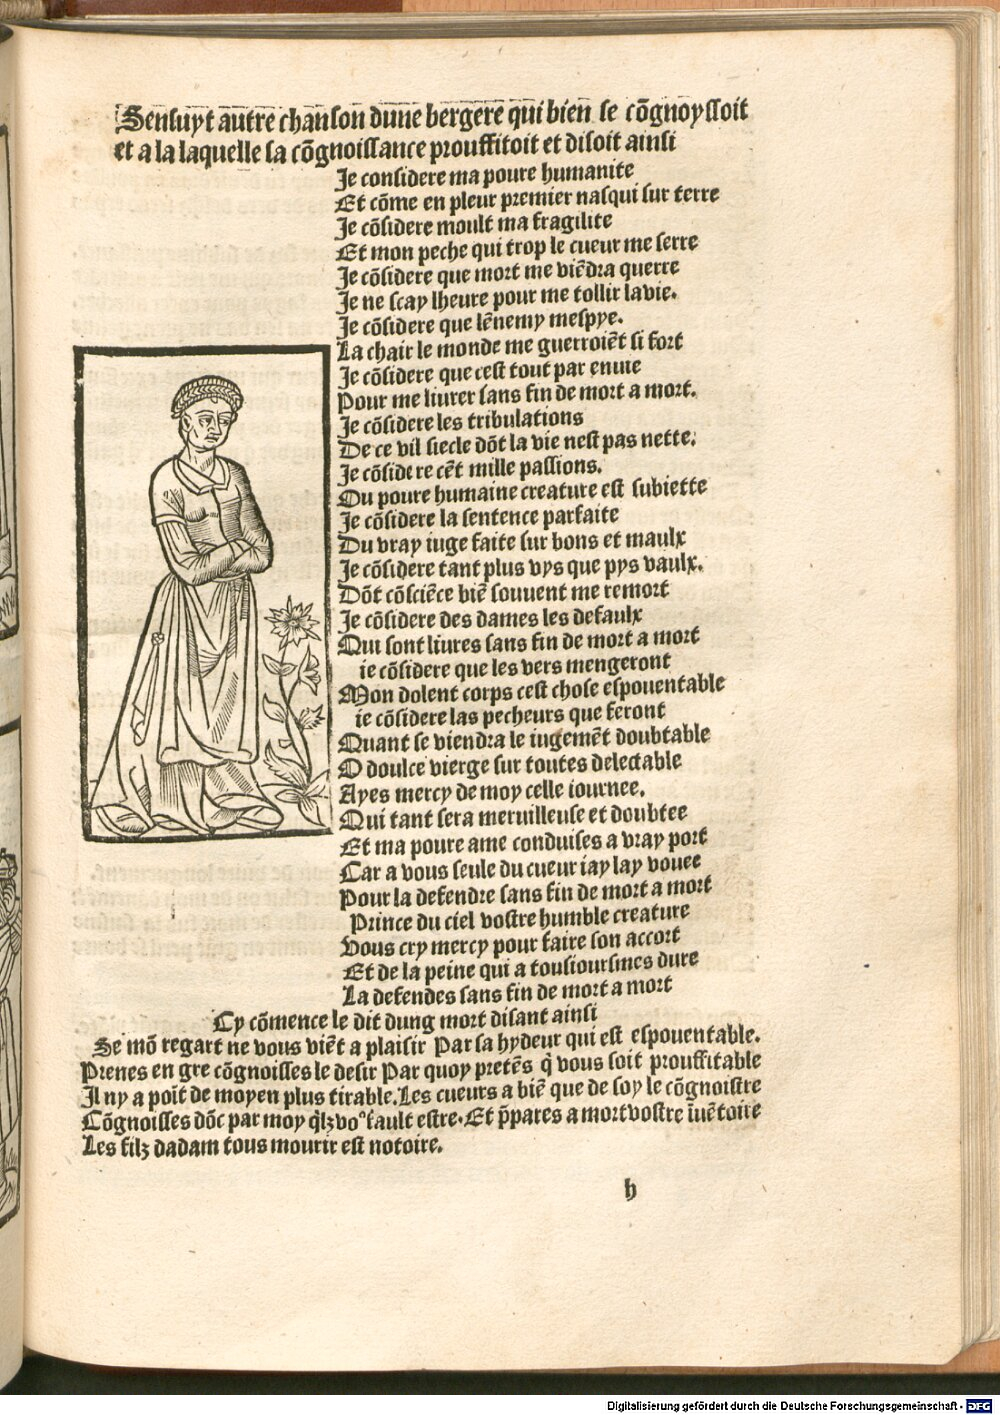 Sensuyt autre chanson dune bergere qui bien se cõgnoyssoit
et a la laquelle sa cõgnoissance prouffitoit et disoit ainsi
Je considere ma poure humanite
Et cõme en pleur premier nasqui sur terre
Je cõsidere moult ma fragilite
Et mon peche qui trop le cueur me serre
Je cõsidere que mort me viẽdra querre
Je ne scay lheure pour me tollir lavie.
Je cõsidere que lẽnemy mespye.
La chair le monde me guerroiẽt si fort
Je cõsidere que cest tout par enuie
Pour me liurer sans fin de mort a mort.
Je cõsidere les tribulations
De ce vil siecle dõt la vie nest pas nette.
Je cõsidere cẽt mille passions.
Ou poure humaine creature est subiette
Je cõsidere la sentence parfaite
Du vray iuge faite sur bons et maulx
Je cõsidere tant plus vys que pys vaulx.
Dõt cõsciẽce biẽ souuent me remort
Je cõsidere des dames les defaulx
Qui sont liures sans fin de mort a mort
ie cõsidere que les vers mengeront
Mon dolent corps cest chose espouentable
ie cõsidere las pecheurs que feront
Quant se viendra le iugemẽt doubtable
O doulce vierge sur toutes delectable
Ayes mercy de moy celle iournee.
Qui tant sera merueilleuse et doubtee
Et ma poure ame conduises a vray port
Car a vous seule du cueur iay lay vouee
Pour la defendre sans fin de mort a mort
Prince du ciel vostre humble creature
Vous cry mercy pour faire son accort
Et de la peine qui a tousioursmes dure
La defendes sans fin de mort a mort
Cy cõmence le dit dung mort disant ainsi
Se mõ regart ne vous viẽt a plaisir Par sa hydeur qui est espouentable.
Prenes en gre cõgnoisses le desir Par quoy pretẽs q̃ vous soit prouffitable
Il ny a poĩt de moyen plus tirable. Les cueurs a biẽ que de soy le cõgnoistre
Cõgnoisses dõc par moy q̃lz voꝰ fault estre. Et p̃pares a mort vostre ĩuẽtoire
Les filz dadam tous mourir est notoire.
h
Digitalisierung gefördert durch die Deutsche Forschungsgemeinschaft - DFG